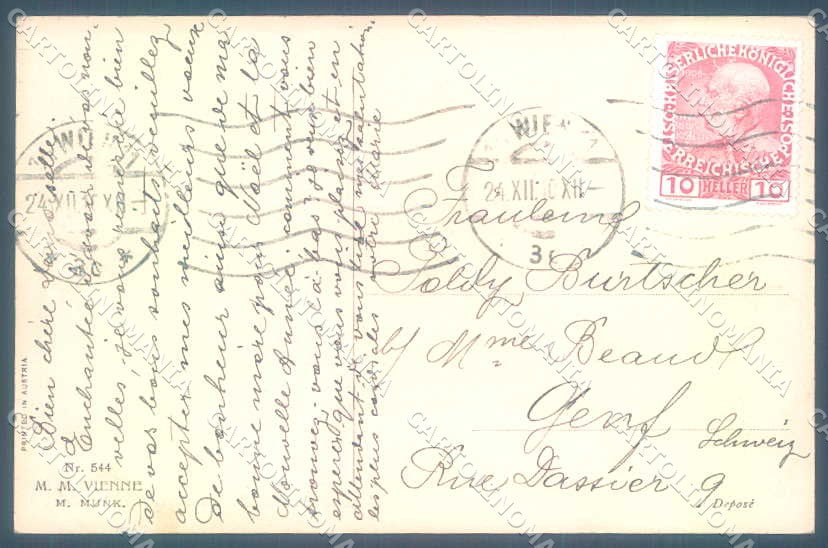 Bien chère Mademoiselle,
Enchantée d'avoir de vos nou-
velles, je vous remercie bien
de vos bons souhaits, veuillez
accepter mes meilleurs voeux
de bonheur ainsi que de ma
bonne mère pour Noël et la
Nouvelle Année; comment vous
trouvez-vous là-bas? je veux bien
espérer que vous vous plaisez et en
attendant de vous lire mes salutations
les plus cordiales votre Marie
PRINTED IN AUSTRIA
Nr. 544
M. M. VIENNE
M. MUNK.
WIEN
24.XII
3
K.K. OESTERREICHISCHE POST
KAISERLICHE KÖNIGLICHE
1908
10 HELLER 10
Fräulein
Poldy Burtscher
b/ Mme Beaud
Genf
Schweiz
Rue Dassier 9
Deposé
CARTOLINOMANIA